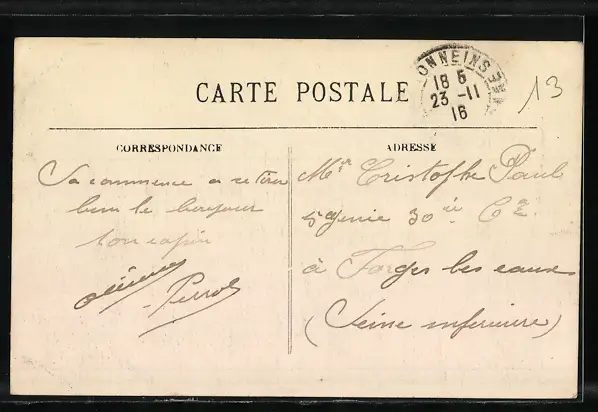 CARTE POSTALE
ONNEINS
18 5
23 -11
16
13
CORRESPONDANCE
Sa commence a se tirer
bien le bonjour
ton copin
Perrol
ADRESSE
Mr Cristophe Paul
5 Génie 30 ie Cie
à Forges les eaux
(Seine inferieure)